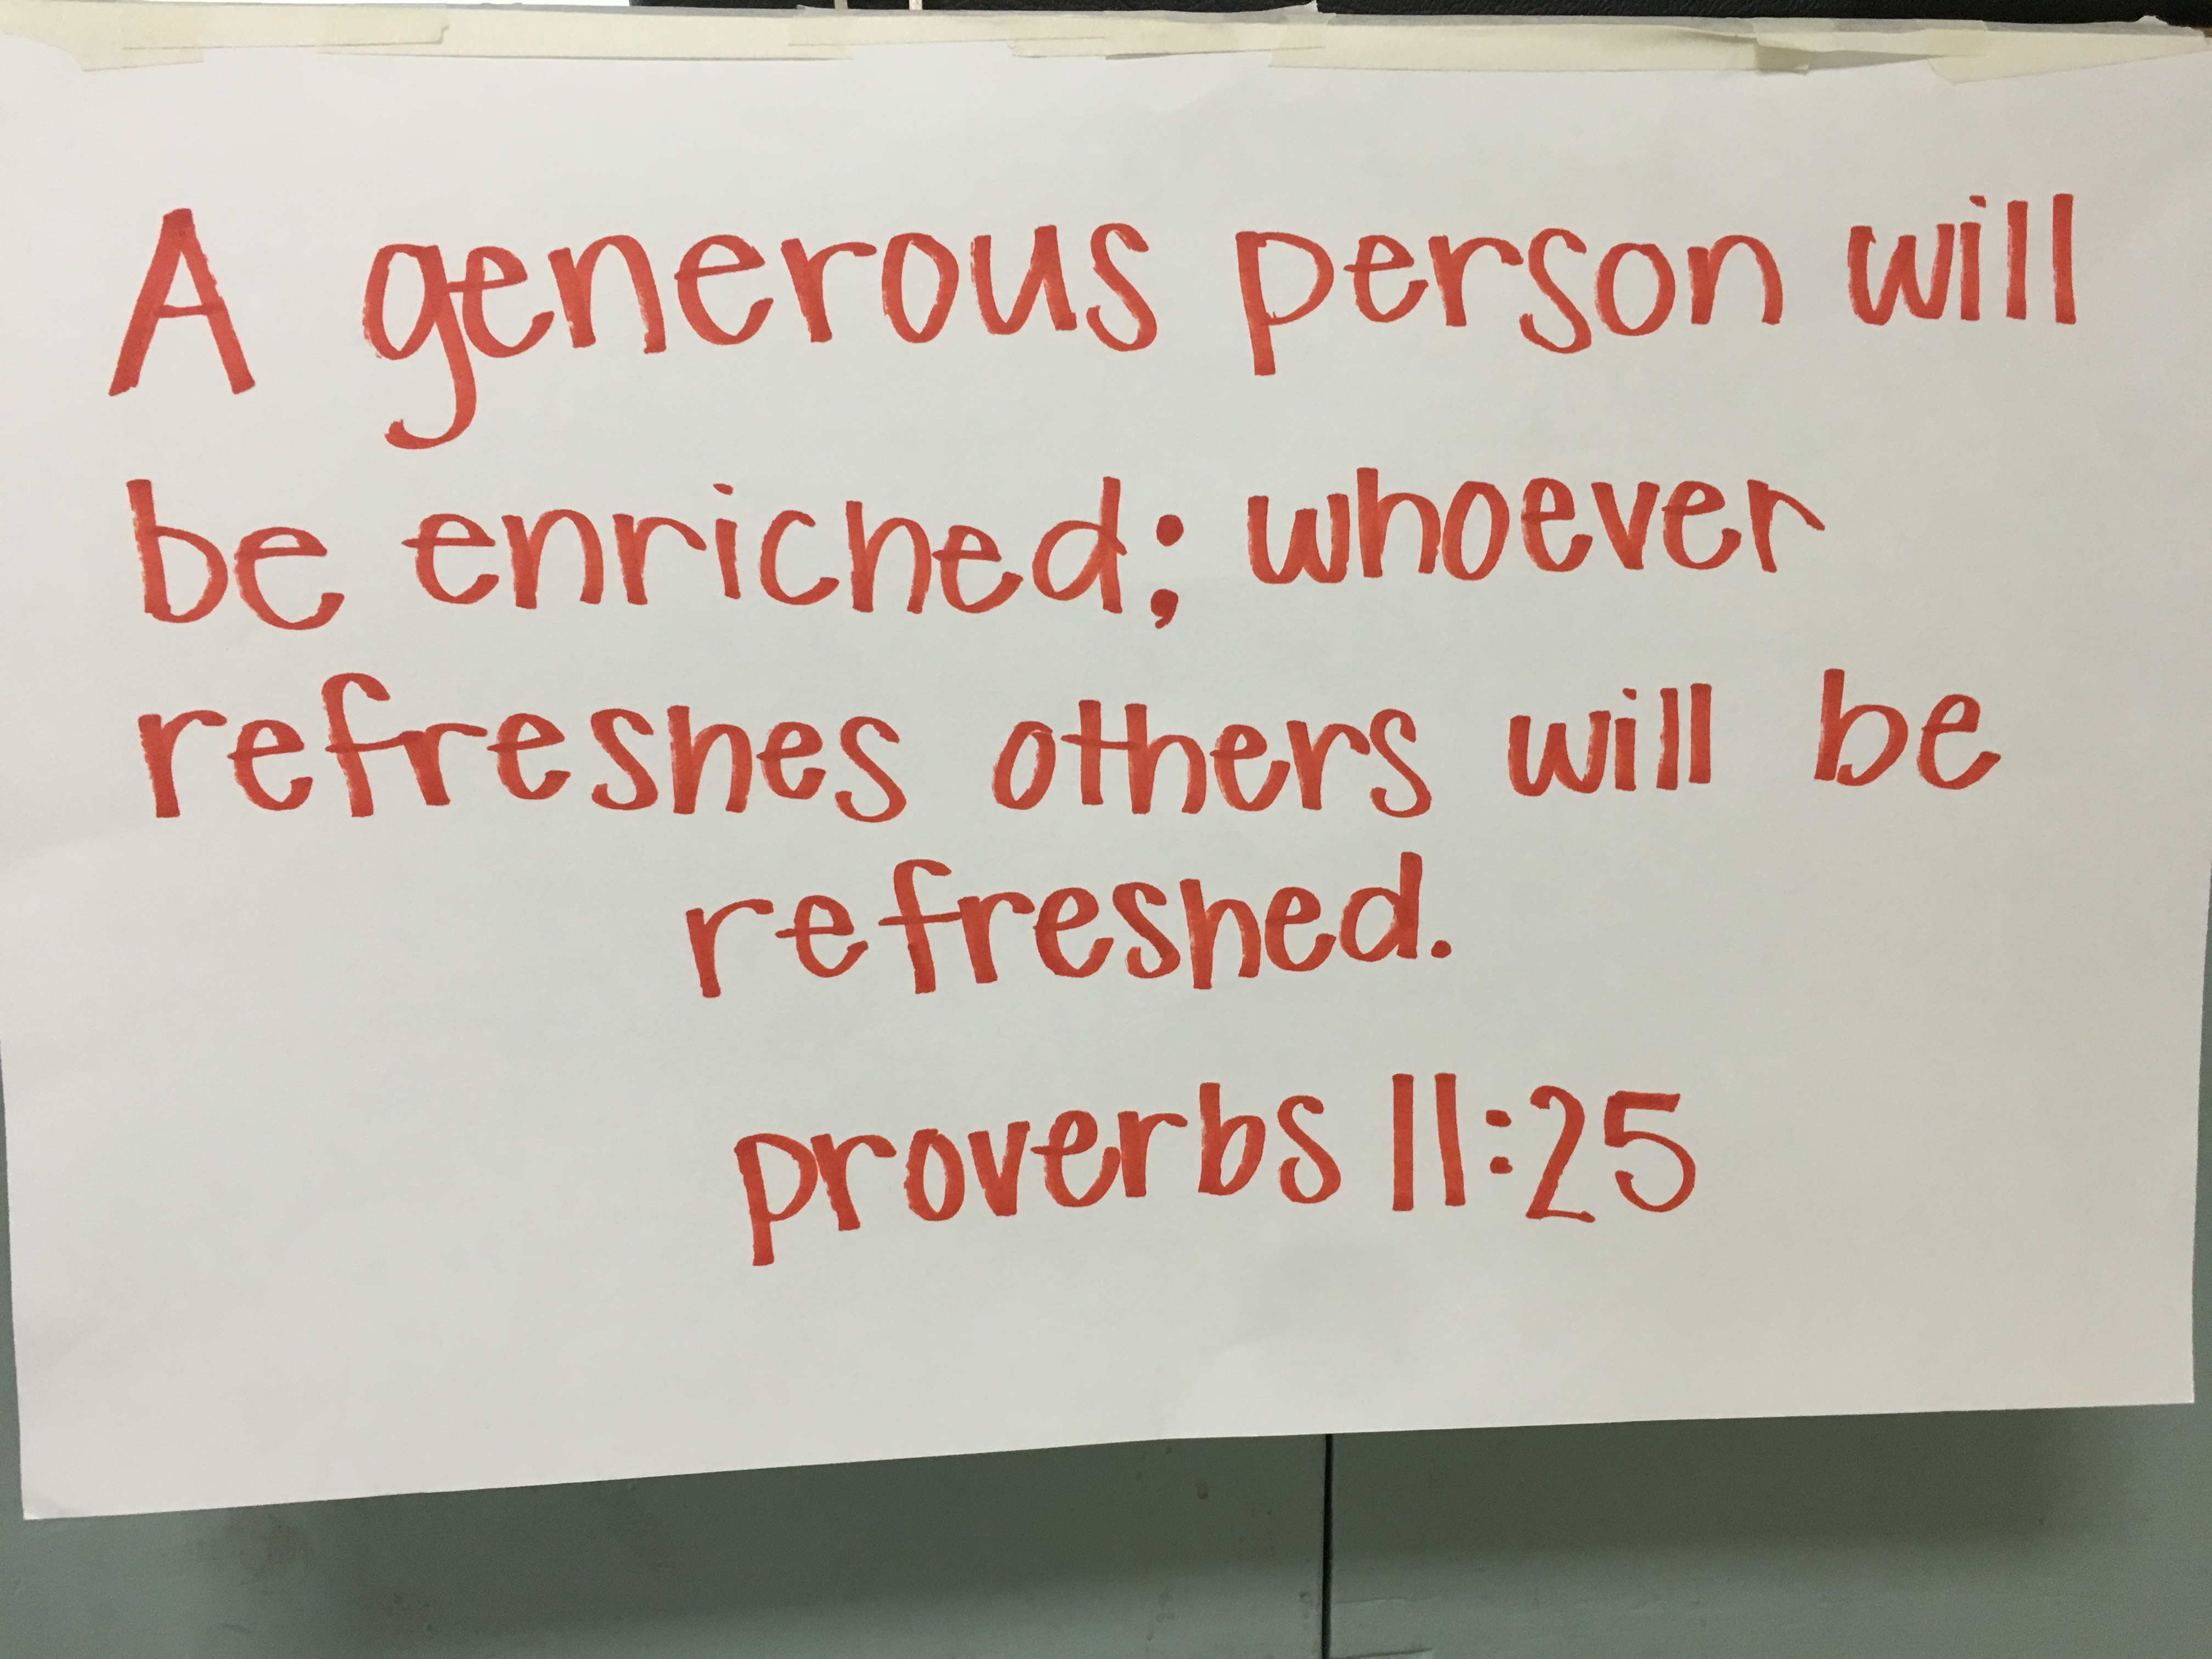 A generous person will
be enriched; whoever
refreshes others will be
refreshed.
proverbs 11:25